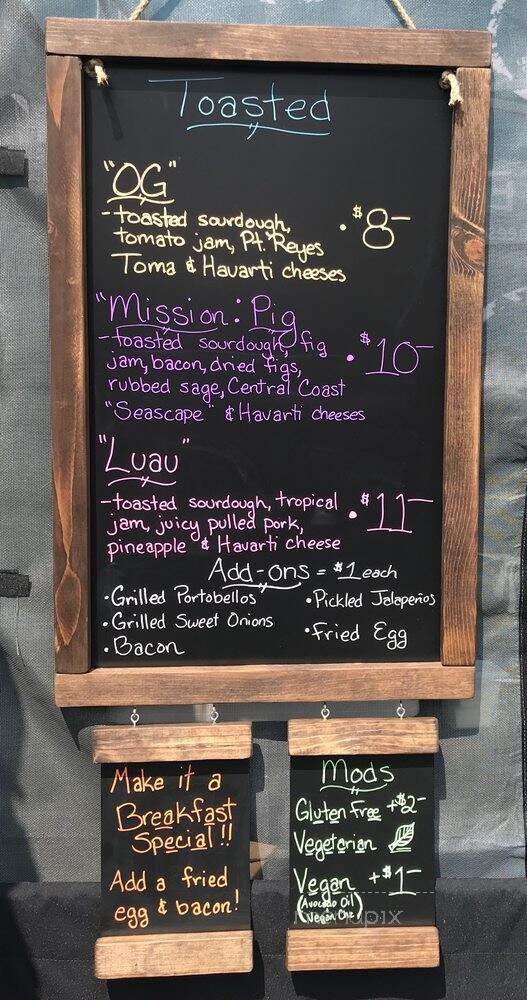 Toasted
"OG"
-toasted sourdough,
tomato jam, Pt. Reyes
Toma & Havarti cheeses
• $8-
"Mission: Pig
-toasted sourdough, fig
jam, bacon, dried figs,
rubbed sage, Central Coast
"Seascape" & Havarti cheeses
• $10-
"Luau"
-toasted sourdough, tropical
jam, juicy pulled pork,
pineapple & Havarti cheese
• $11-
Add-ons = $1 each
• Grilled Portobellos
• Grilled Sweet Onions
• Bacon
• Pickled Jalapeños
• Fried Egg
Make it a
Breakfast
Special!!
Add a fried
egg & bacon!
Mods
Gluten Free +$2-
Vegetarian
Vegan +$1-
(Avocado Oil
Vegan Chz)